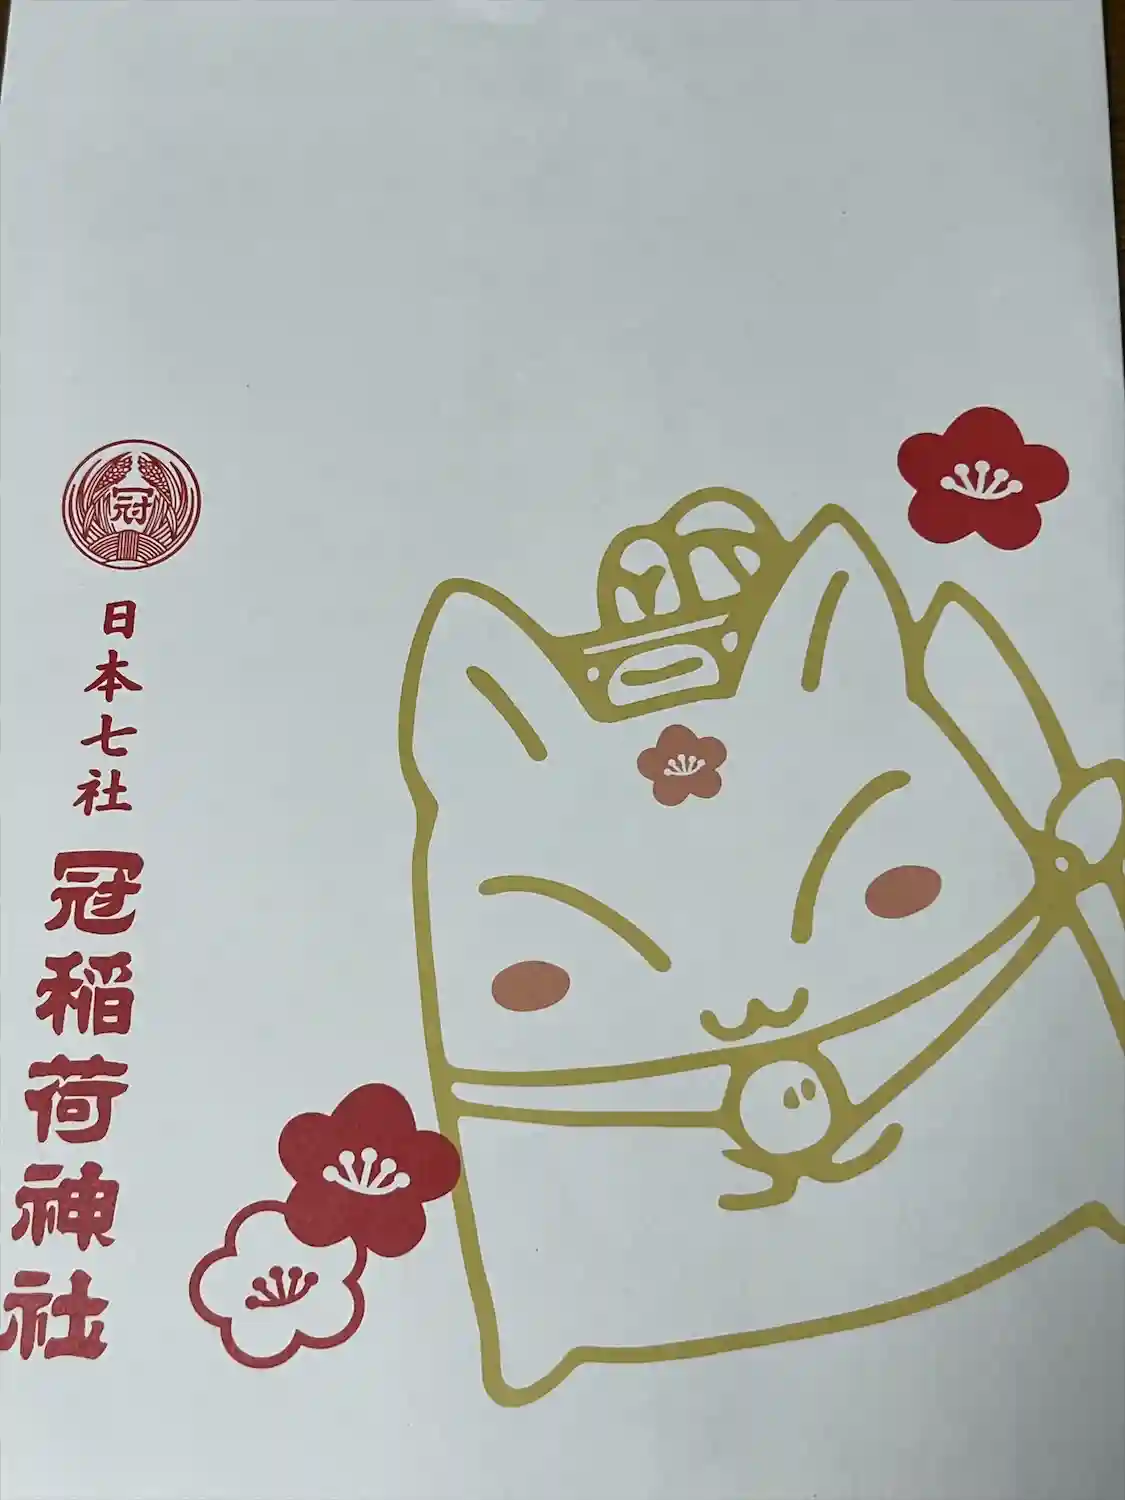 冠
日本七社
冠稲荷神社